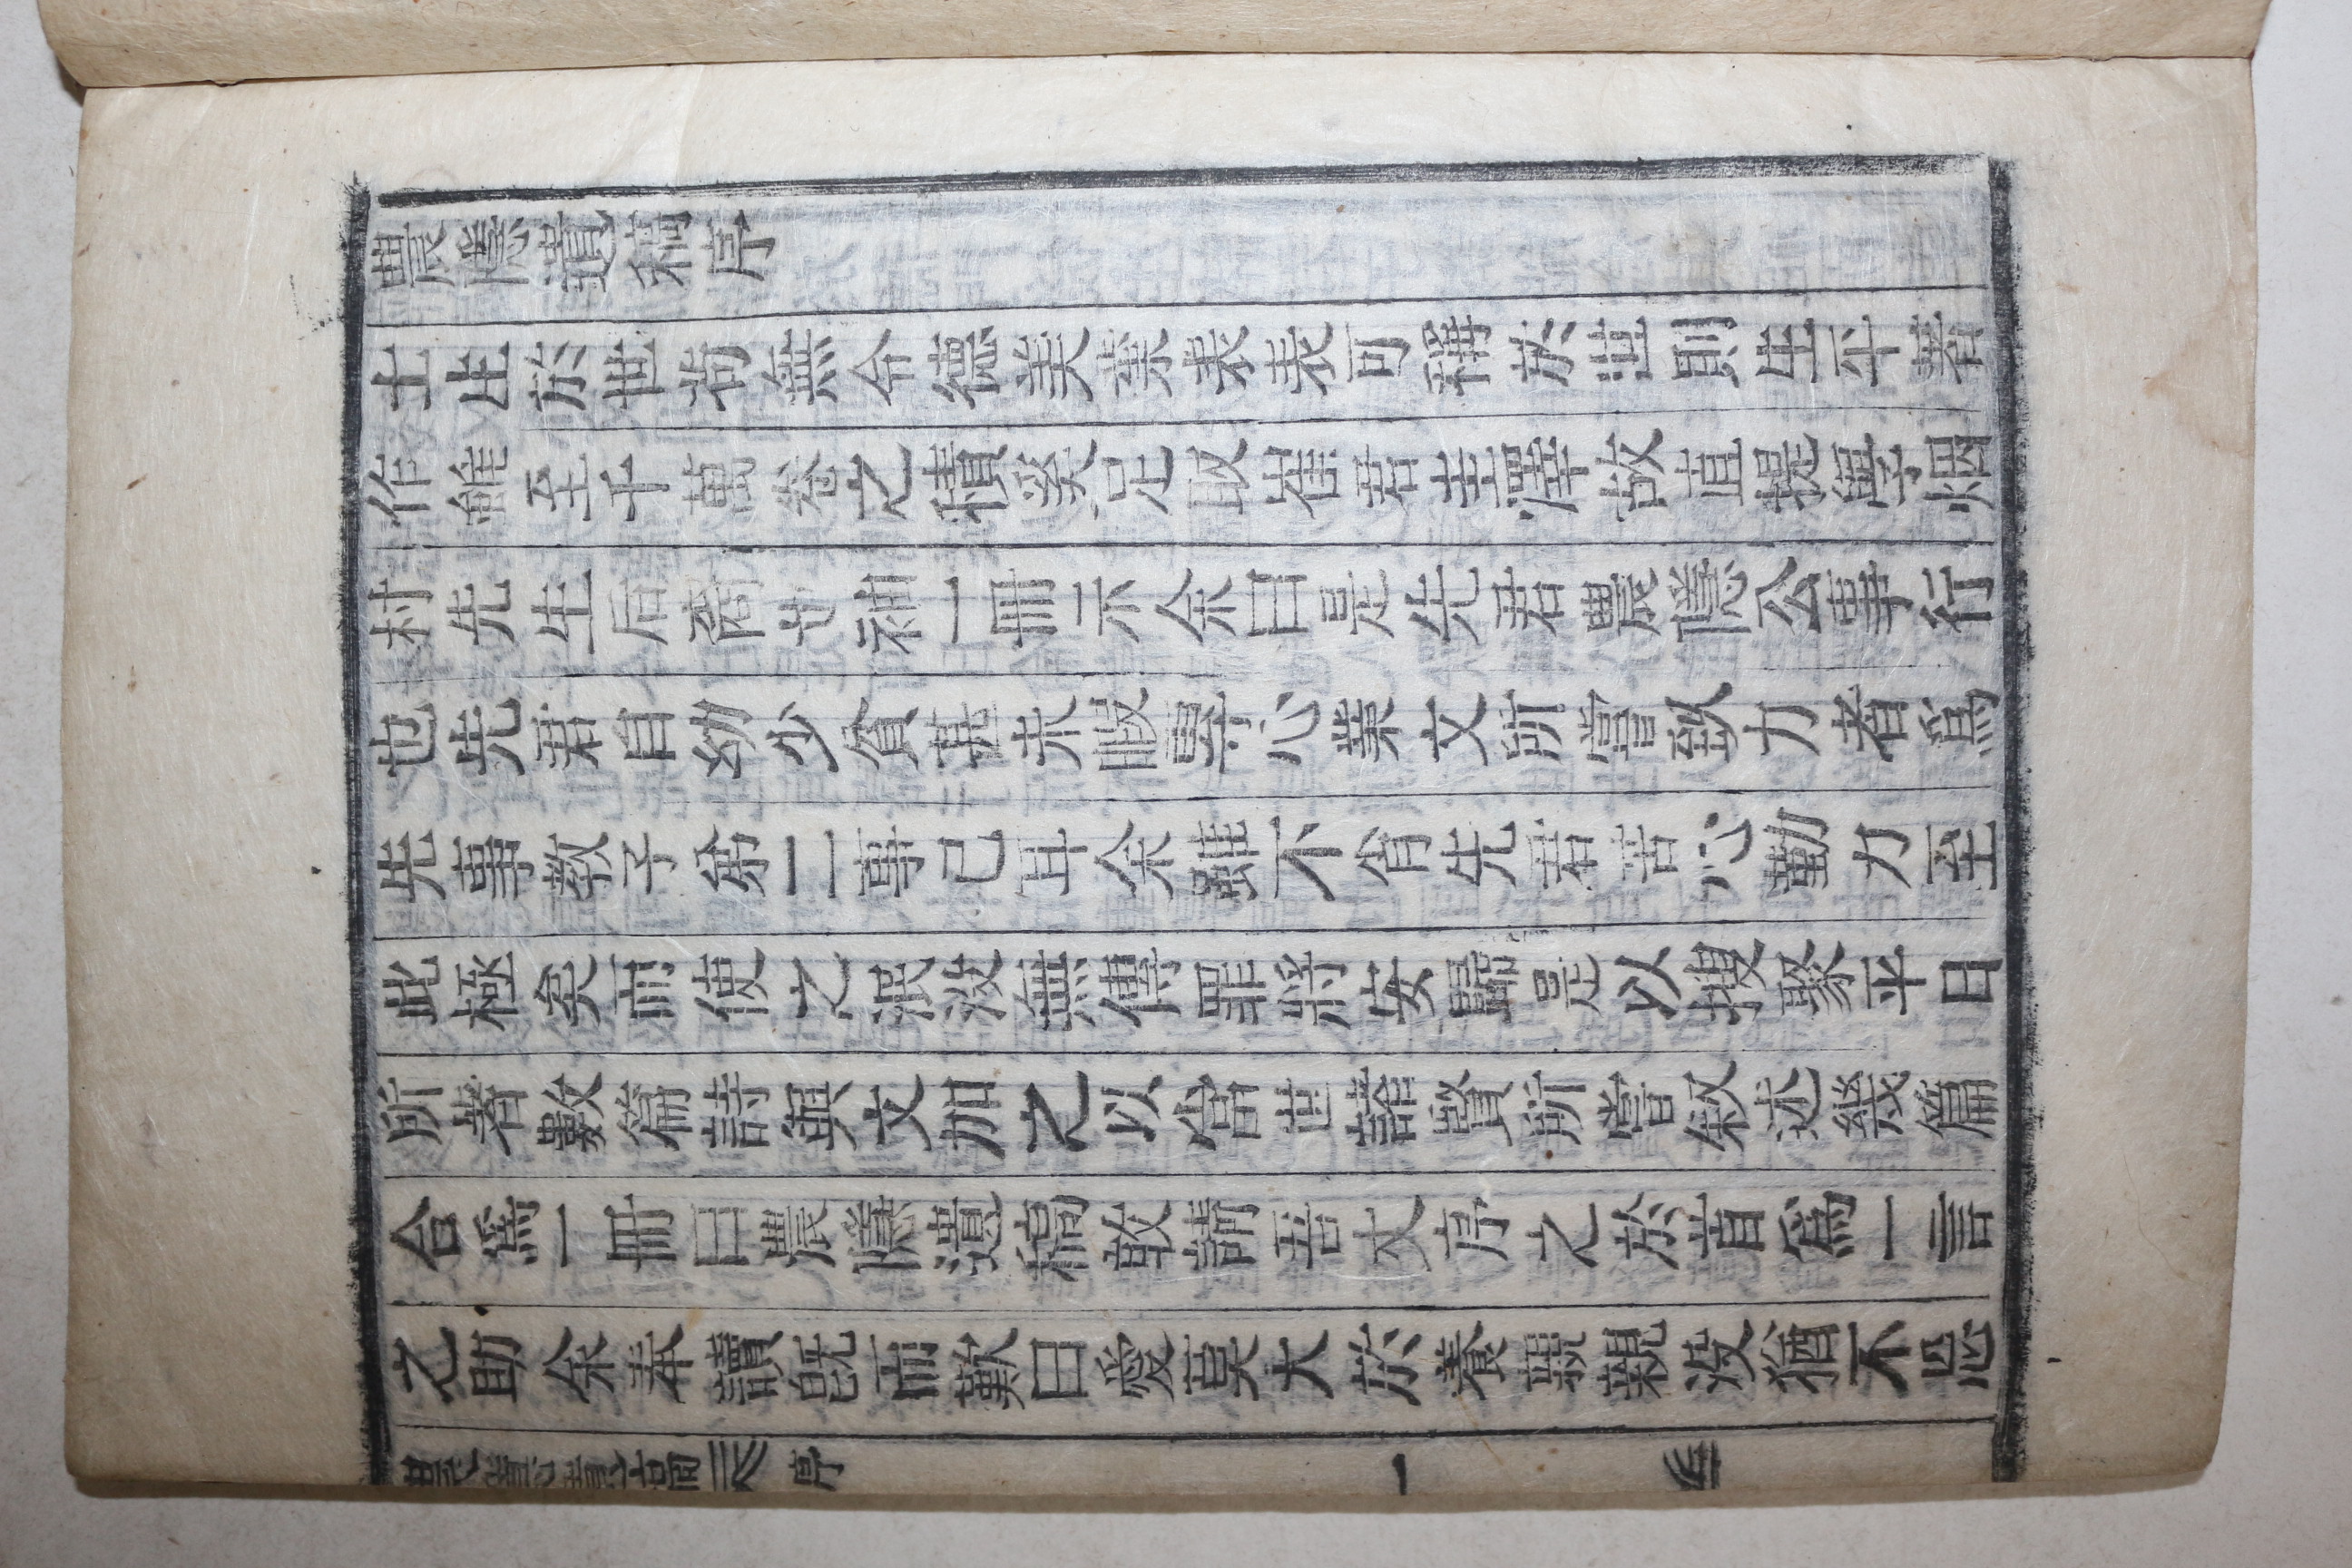 農隱遺稿序
士生於世苟無令德美業表表可稱於世則生平著
作雖至千萬卷之積奚足取崔君圭澤故直提學烟
村先生后裔也袖一冊示余曰是先君農隱公事行
也先君自幼少貧甚未暇專心業文所嘗致力者爲
先事敎子弟二事已耳余雖不肖先君苦心勤力至
此極矣而使之泯沒無傳罪將安歸是以搜聚平日
所著數篇詩與文加之以當世諸賢所嘗叙述幾篇
合爲一冊曰農隱遺稿敢請吾丈序之於首爲一言
之助余奉讀旣而歎曰愛莫大於養親親沒猶不忍
農隱遺稿 序 一